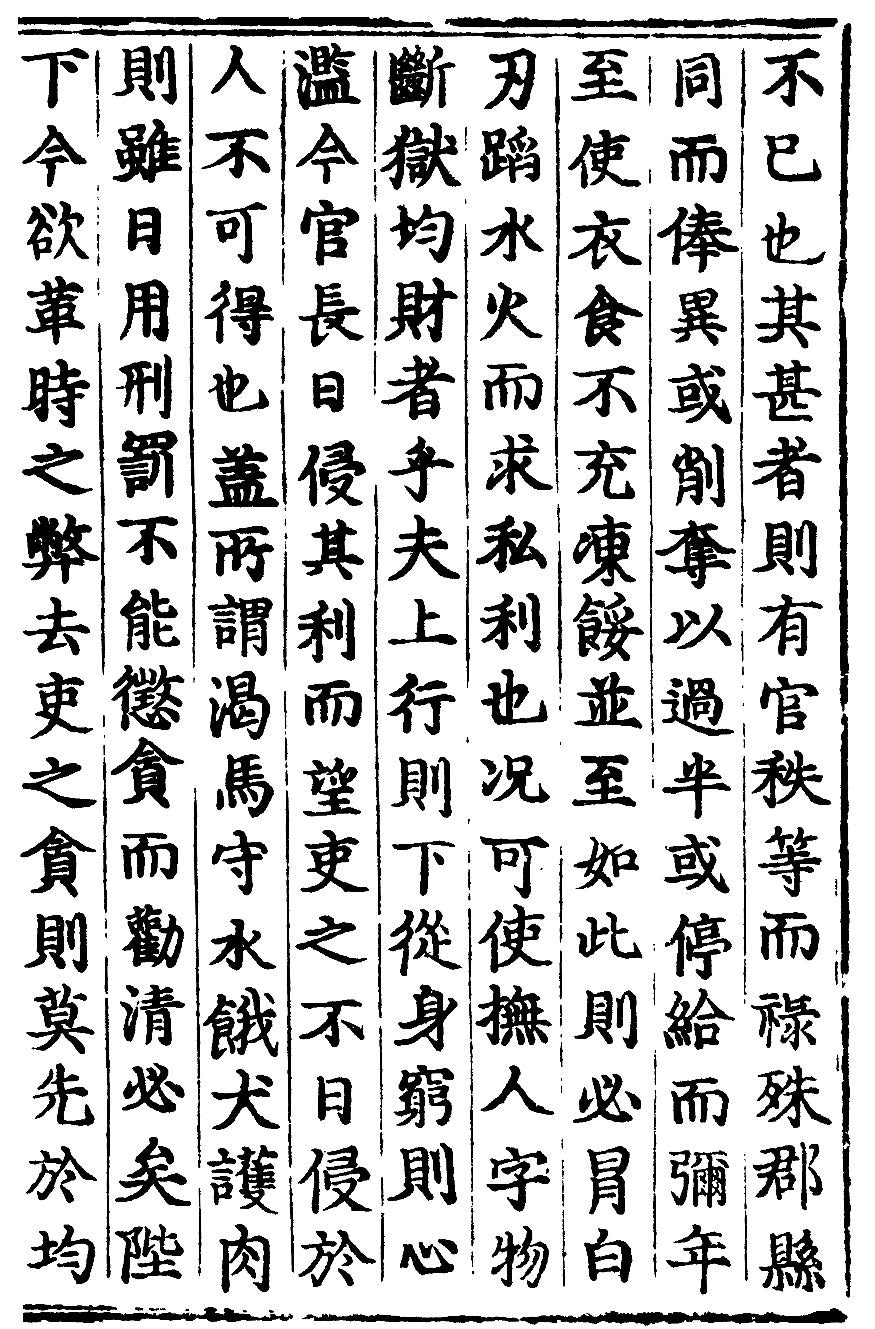 不已也其甚者則有官秩等而祿殊郡縣
同而俸異或削奪以過半或停給而彌年
至使衣食不充凍餒並至如此則必冒白
刃蹈水火而求私利也况可使撫人字物
斷獄均財者乎夫上行則下從身窮則心
濫今官長日侵其利而望吏之不日侵於
人不可得也蓋所謂渴馬守水餓犬護肉
則雖日用刑罰不能懲貪而勸清必矣陛
下今欲革時之弊去吏之貪則莫先於均